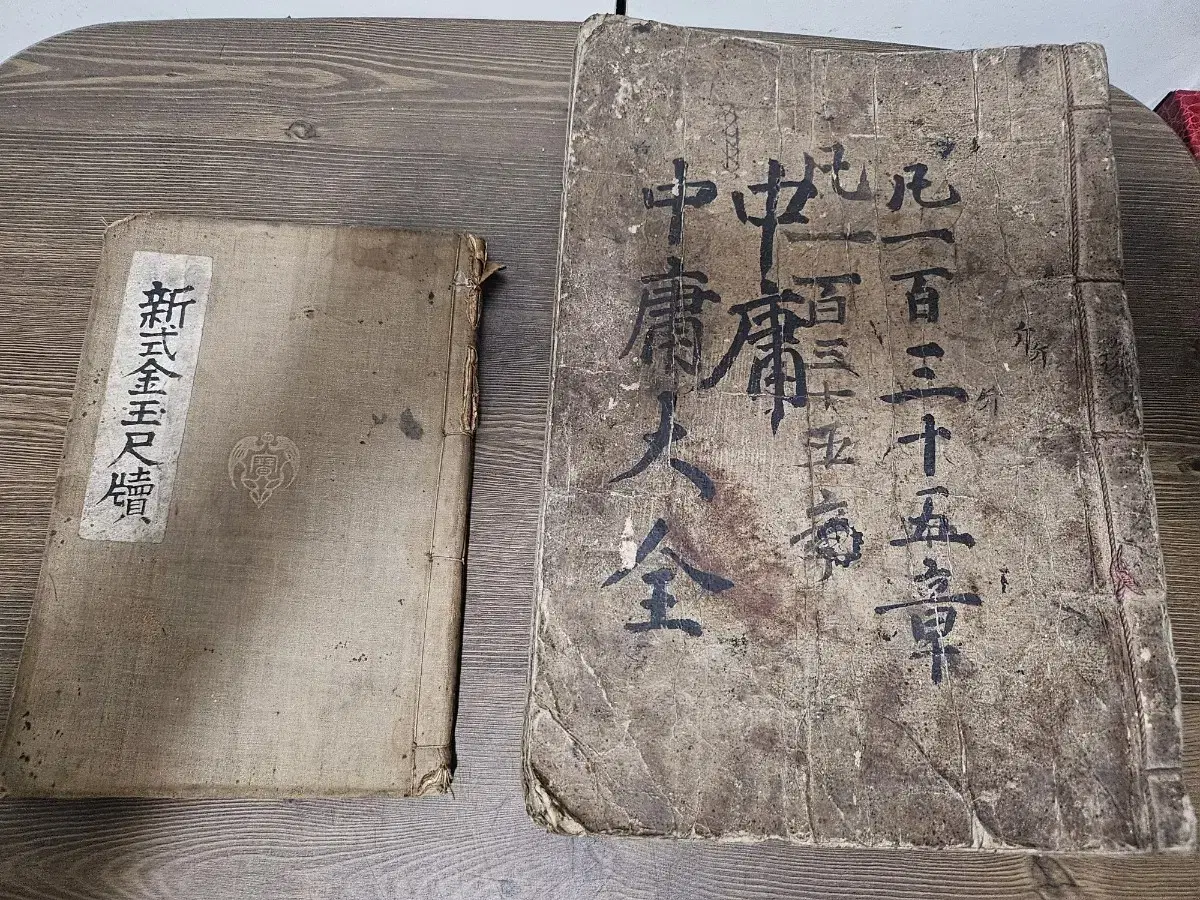 新式金玉尺牘
凡一百三十五章
凡一百三十五章
中庸
中庸大全